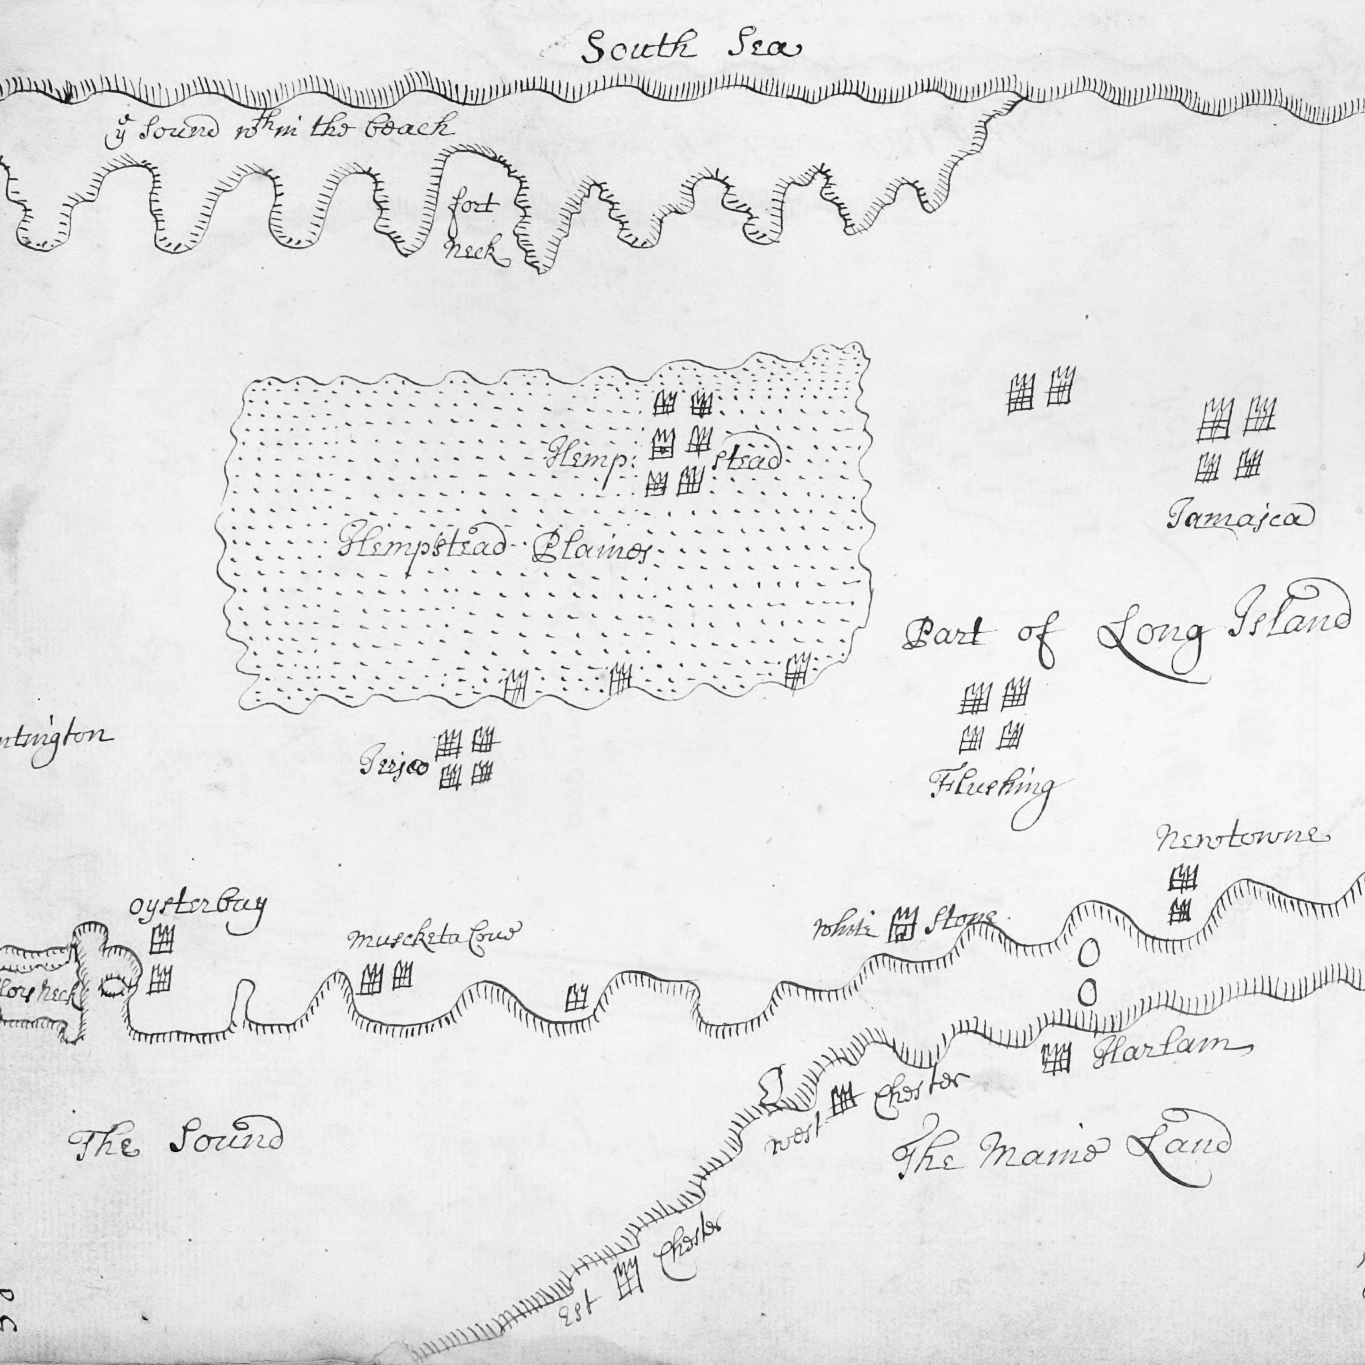 South Sea
yͤ Sound wᵗʰin the beach
fort
neck
Hemp: stead
Hempstead Plaines
Jamajca
Part of Long Island
Flushing
ntington
Jerjco
Newtowne
oysterbay
Muscketa Cove
White Stone
Harlam
West Chester
The Sound
The Maine Land
Est Chester